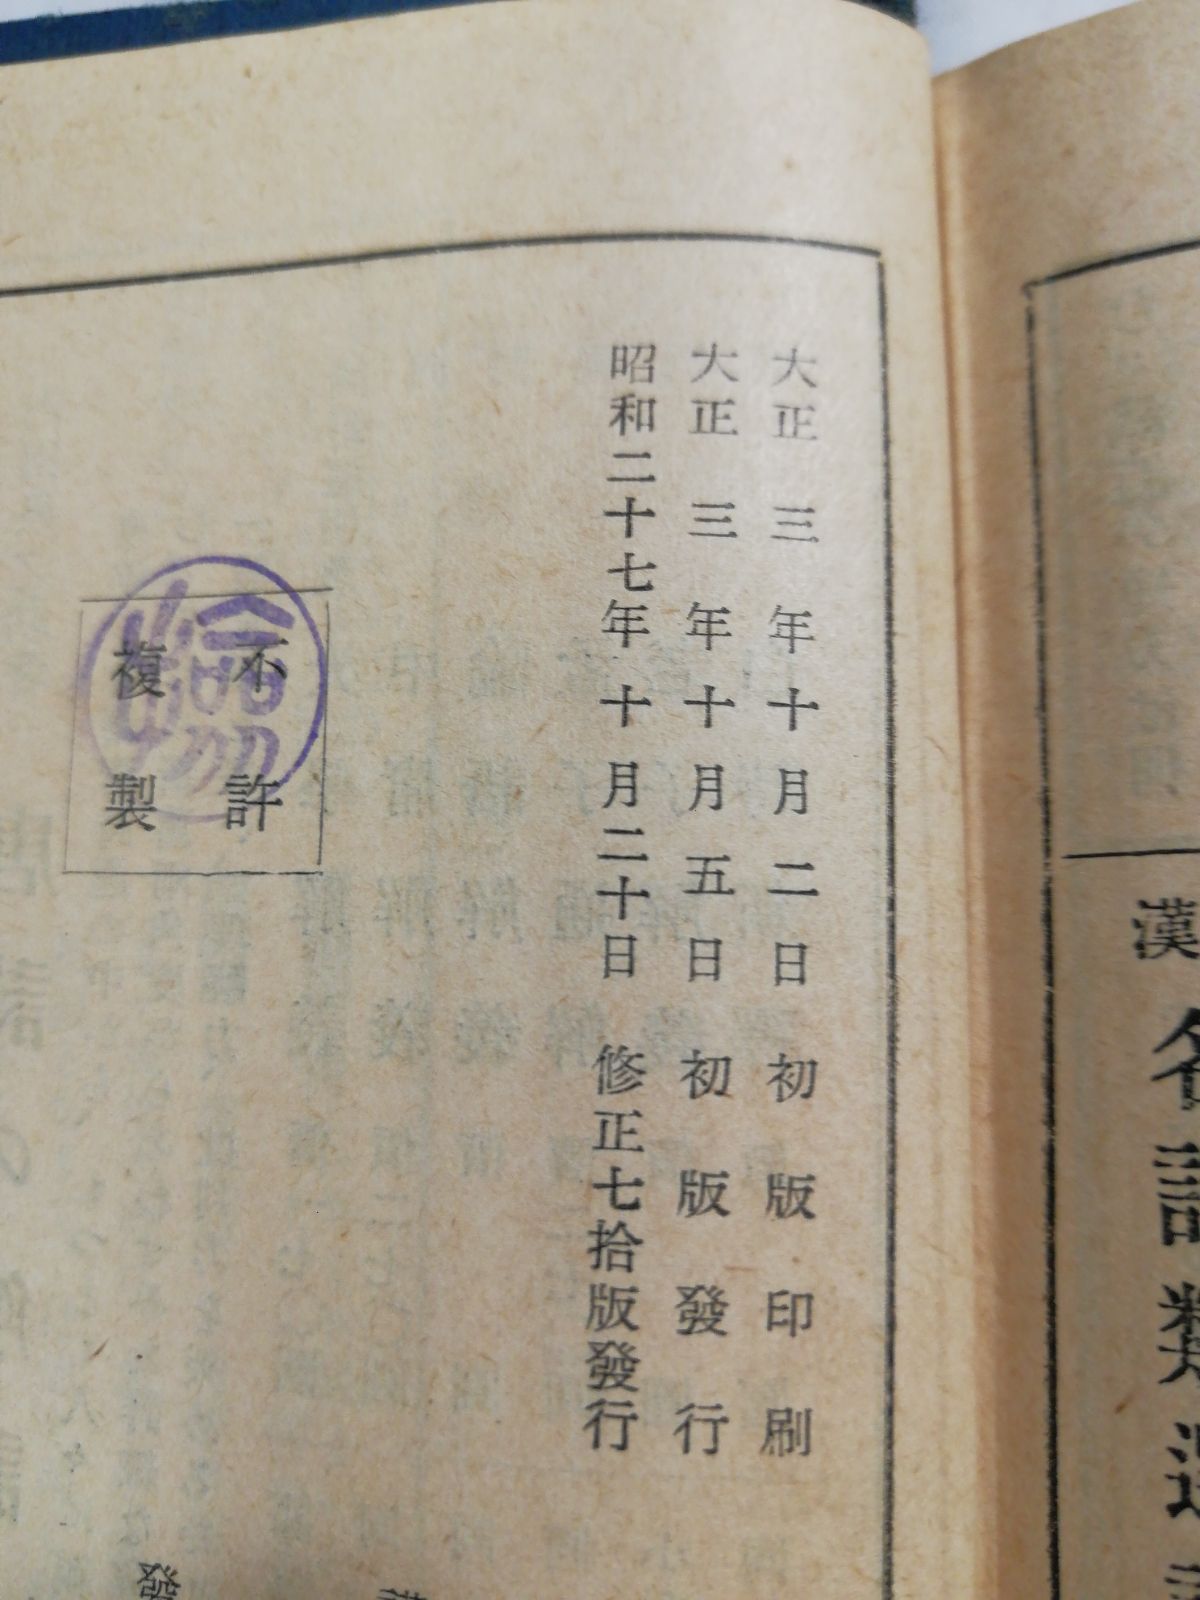 大正三年十月二日初版印刷
大正三年十月五日初版發行
昭和二十七年十月二十日修正七拾版發行
不許
複製
發
漢